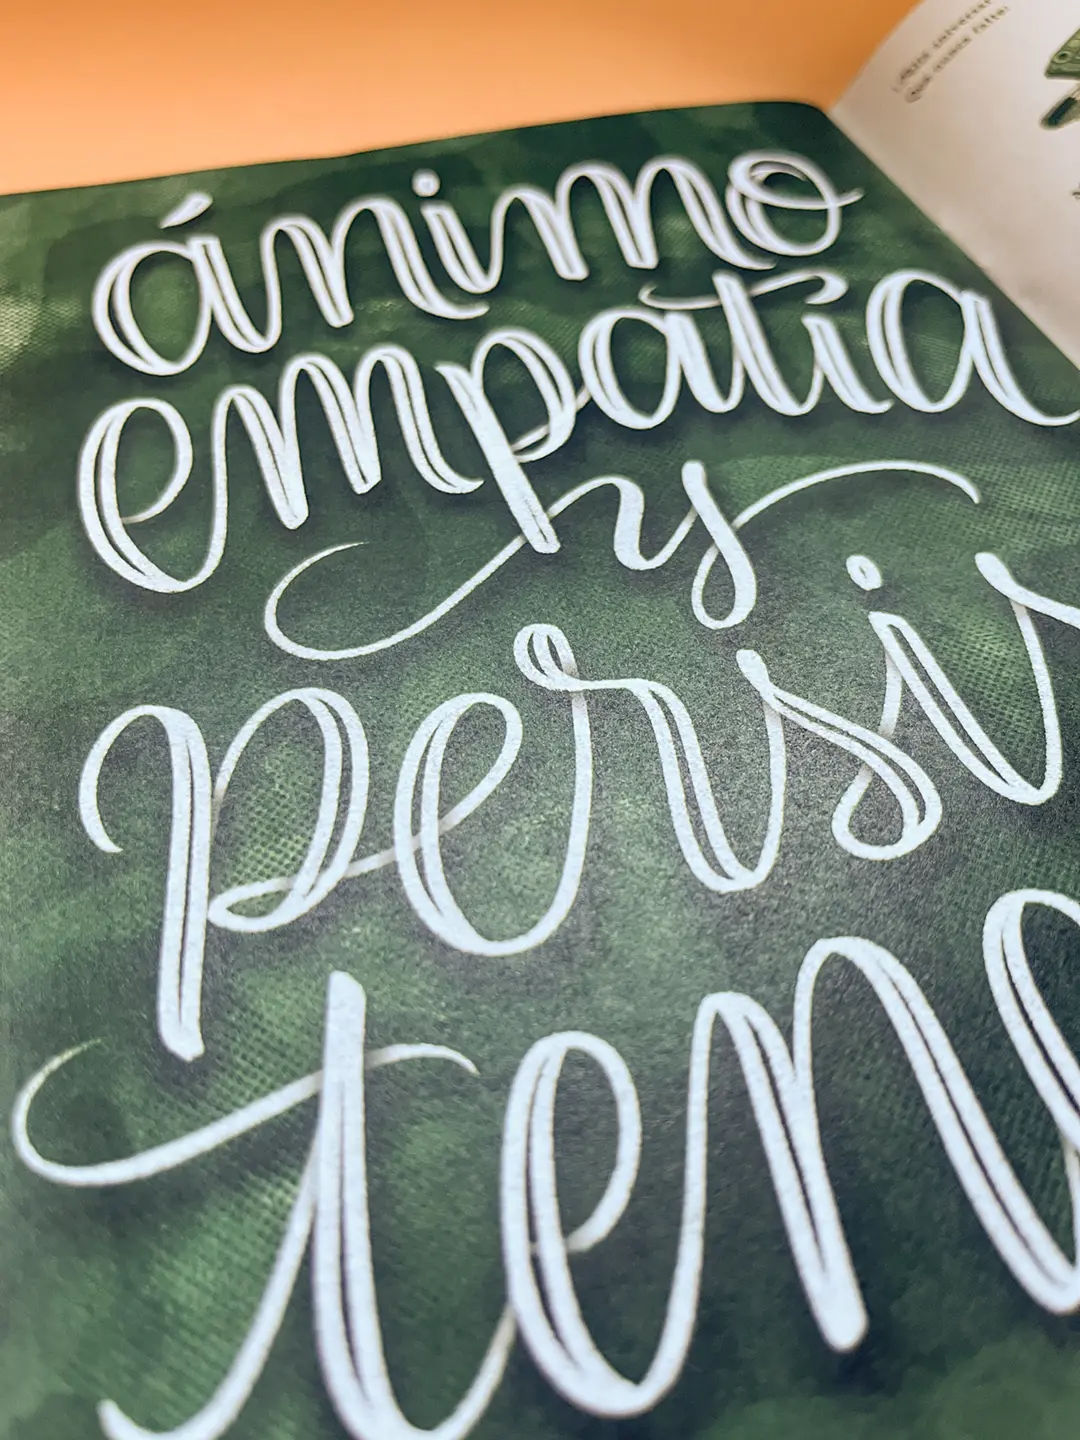 ánimo
empatía
y
persis
ten